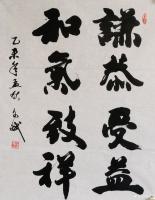 謙恭受益
和氣致祥
乙未年孟秋